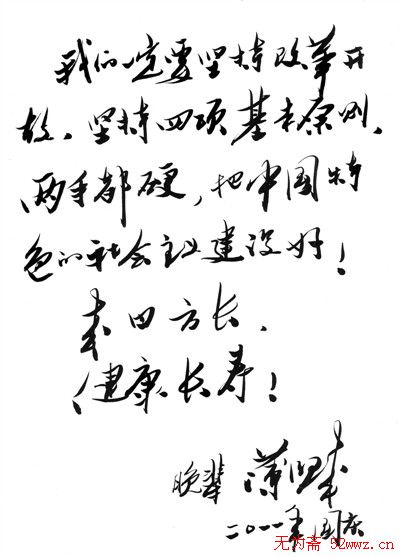 我们一定要坚持改革开
放、坚持四项基本原则、
两手都硬,把中国特
色的社会主义建设好!
来日方长,
健康长寿!
晚辈
二〇一一年国庆
无为斋 52wwz.cn